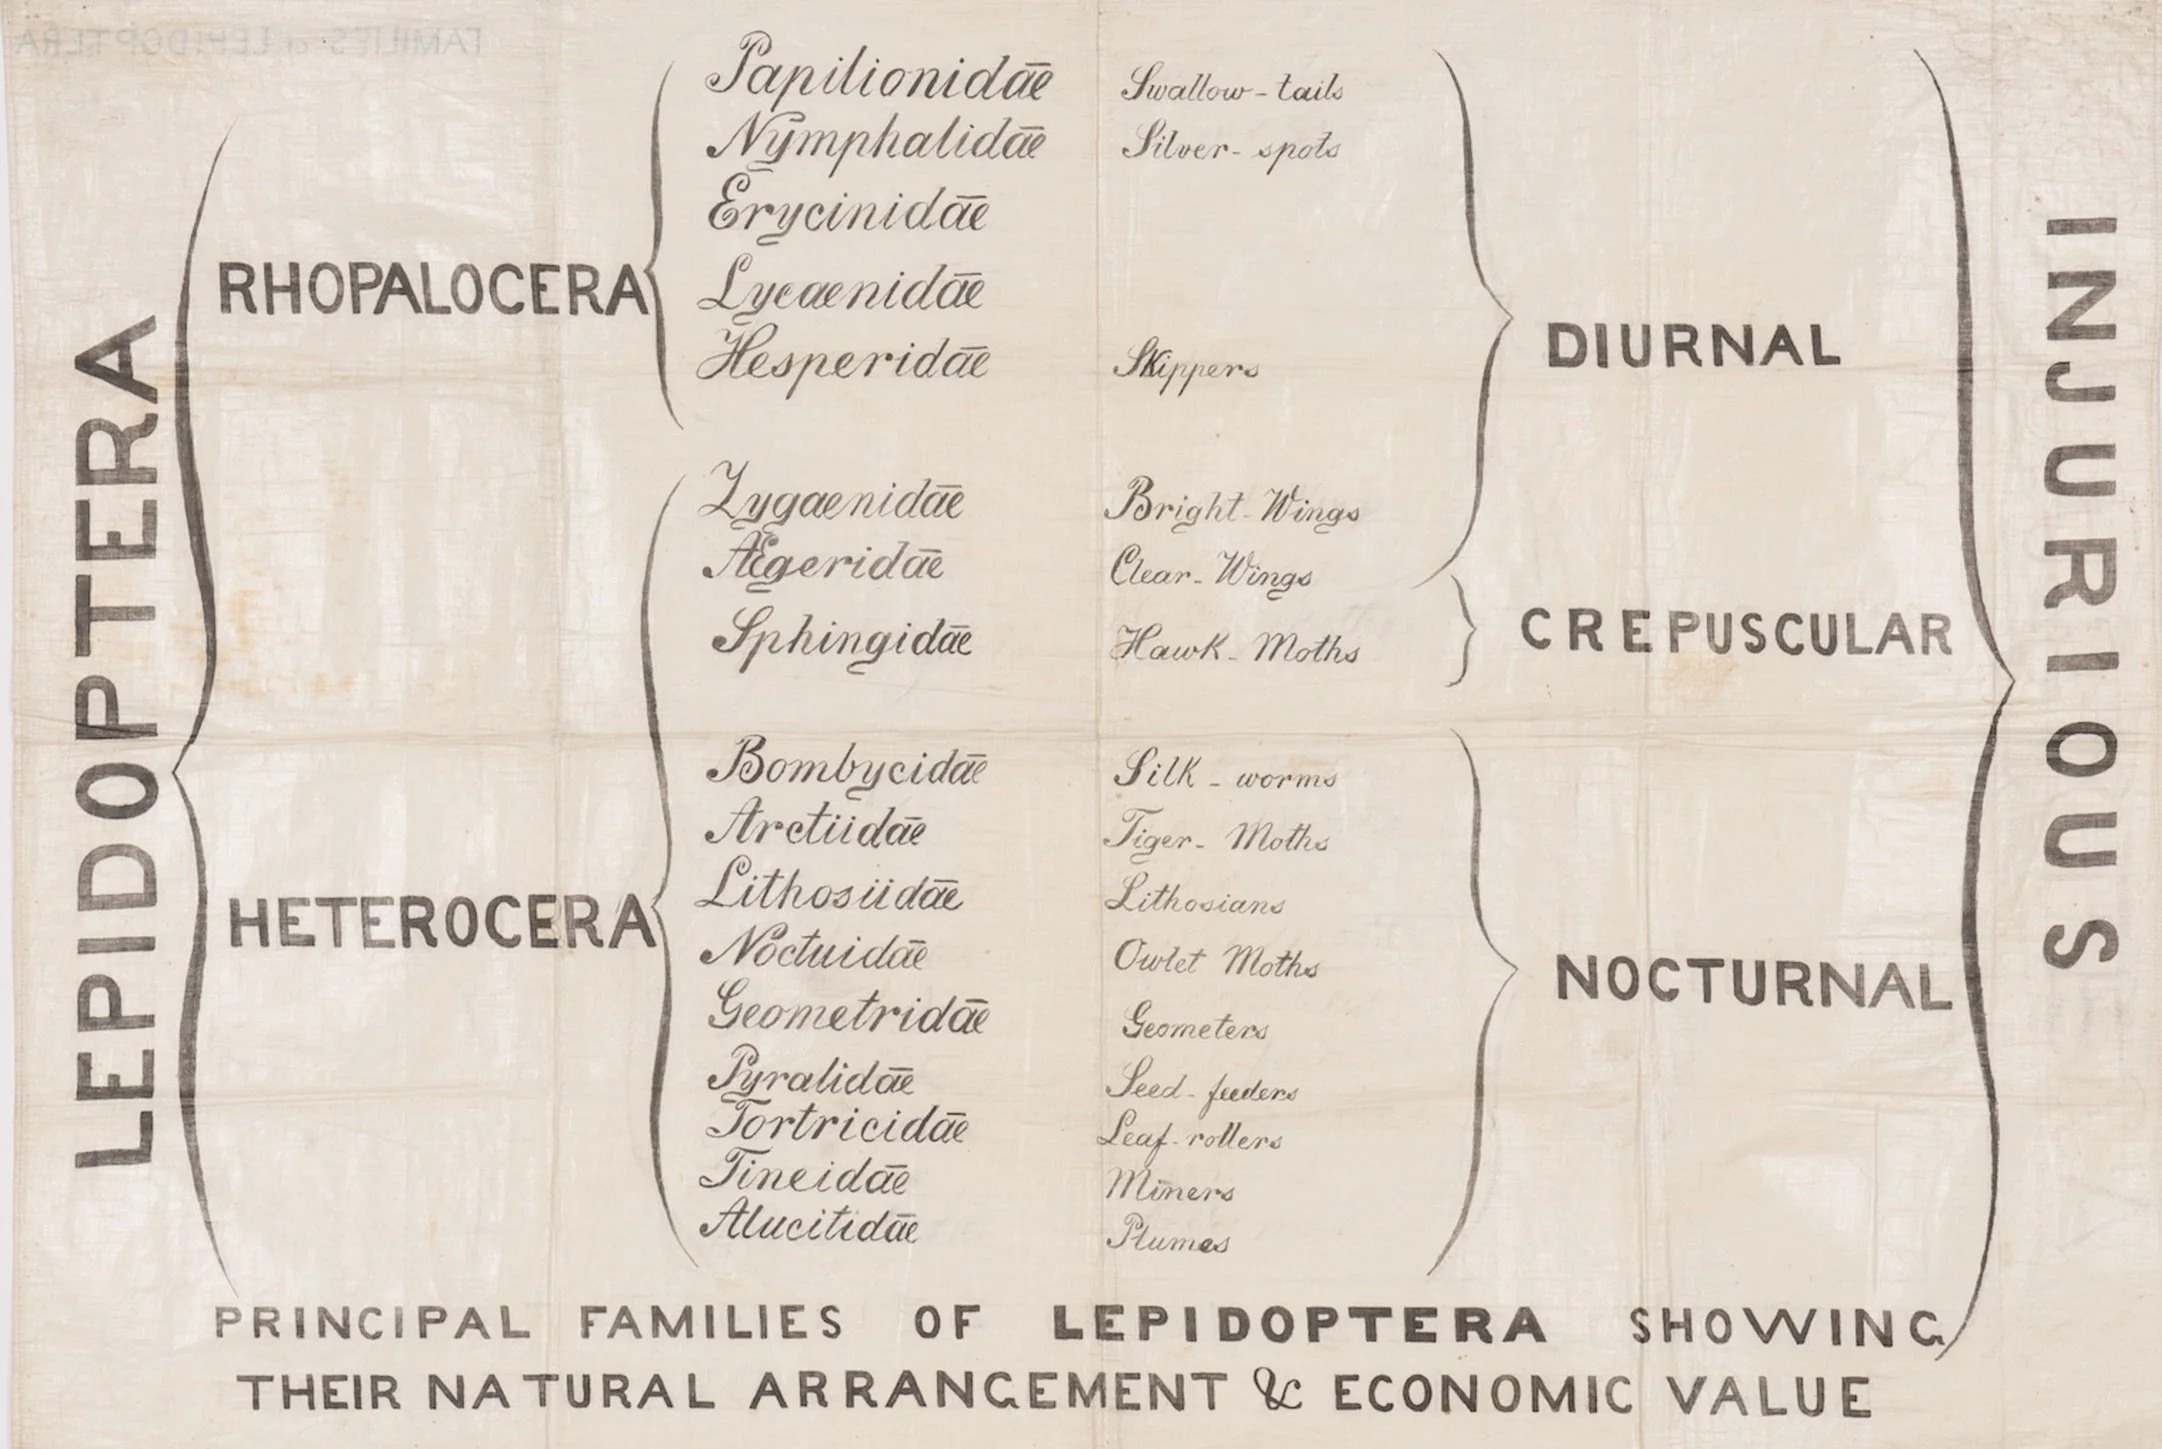 FAMILIES of LEPIDOPTERA
LEPIDOPTERA
RHOPALOCERA
Papilionidāe Swallow-tails
Nymphalidāe Silver-spots
Erycinidāe
Lycaenidāe
Hesperidāe Skippers
DIURNAL
HETEROCERA
Zygaenidāe Bright-Wings
Ægeridāe Clear-Wings
Sphingidāe Hawk-Moths
CREPUSCULAR
Bombycidāe Silk-worms
Arctiidāe Tiger-Moths
Lithosiidāe Lithosians
Noctuidāe Owlet Moths
Geometridāe Geometers
Pyralidāe Seed-feeders
Tortricidāe Leaf-rollers
Tineidāe Miners
Alucitidāe Plumes
NOCTURNAL
INJURIOUS
PRINCIPAL FAMILIES OF LEPIDOPTERA SHOWING
THEIR NATURAL ARRANGEMENT & ECONOMIC VALUE